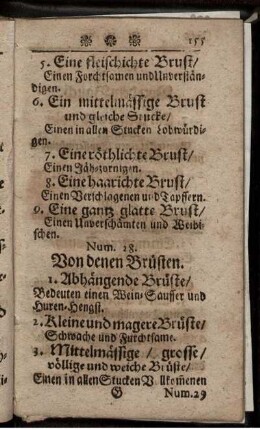 155
5. Eine fleischichte Brust/
Einen Forchtsamen und Unverstän-
digen.
6. Ein mittelmässige Brust
und gleiche Stucke/
Einen in allen Stucken Lobwürdi-
gen.
7. Eine röthlichte Brust/
Einen Jähzornigen.
8. Eine haarichte Brust/
Einen Verschlagenen und Tapffern.
9. Eine gantz glatte Brust/
Einen Unverschämten und Weibi-
schen.
Num. 28.
Von denen Brüsten.
1. Abhängende Brüste/
Bedeuten einen Wein-Sauffer und
Huren-Hengst.
2. Kleine und magere Brüste/
Schwache und Furchtsame.
3. Mittelmässige / grosse/
völlige und weiche Brüste/
Einen in allen Stucken Vollkomenen
G Num. 29